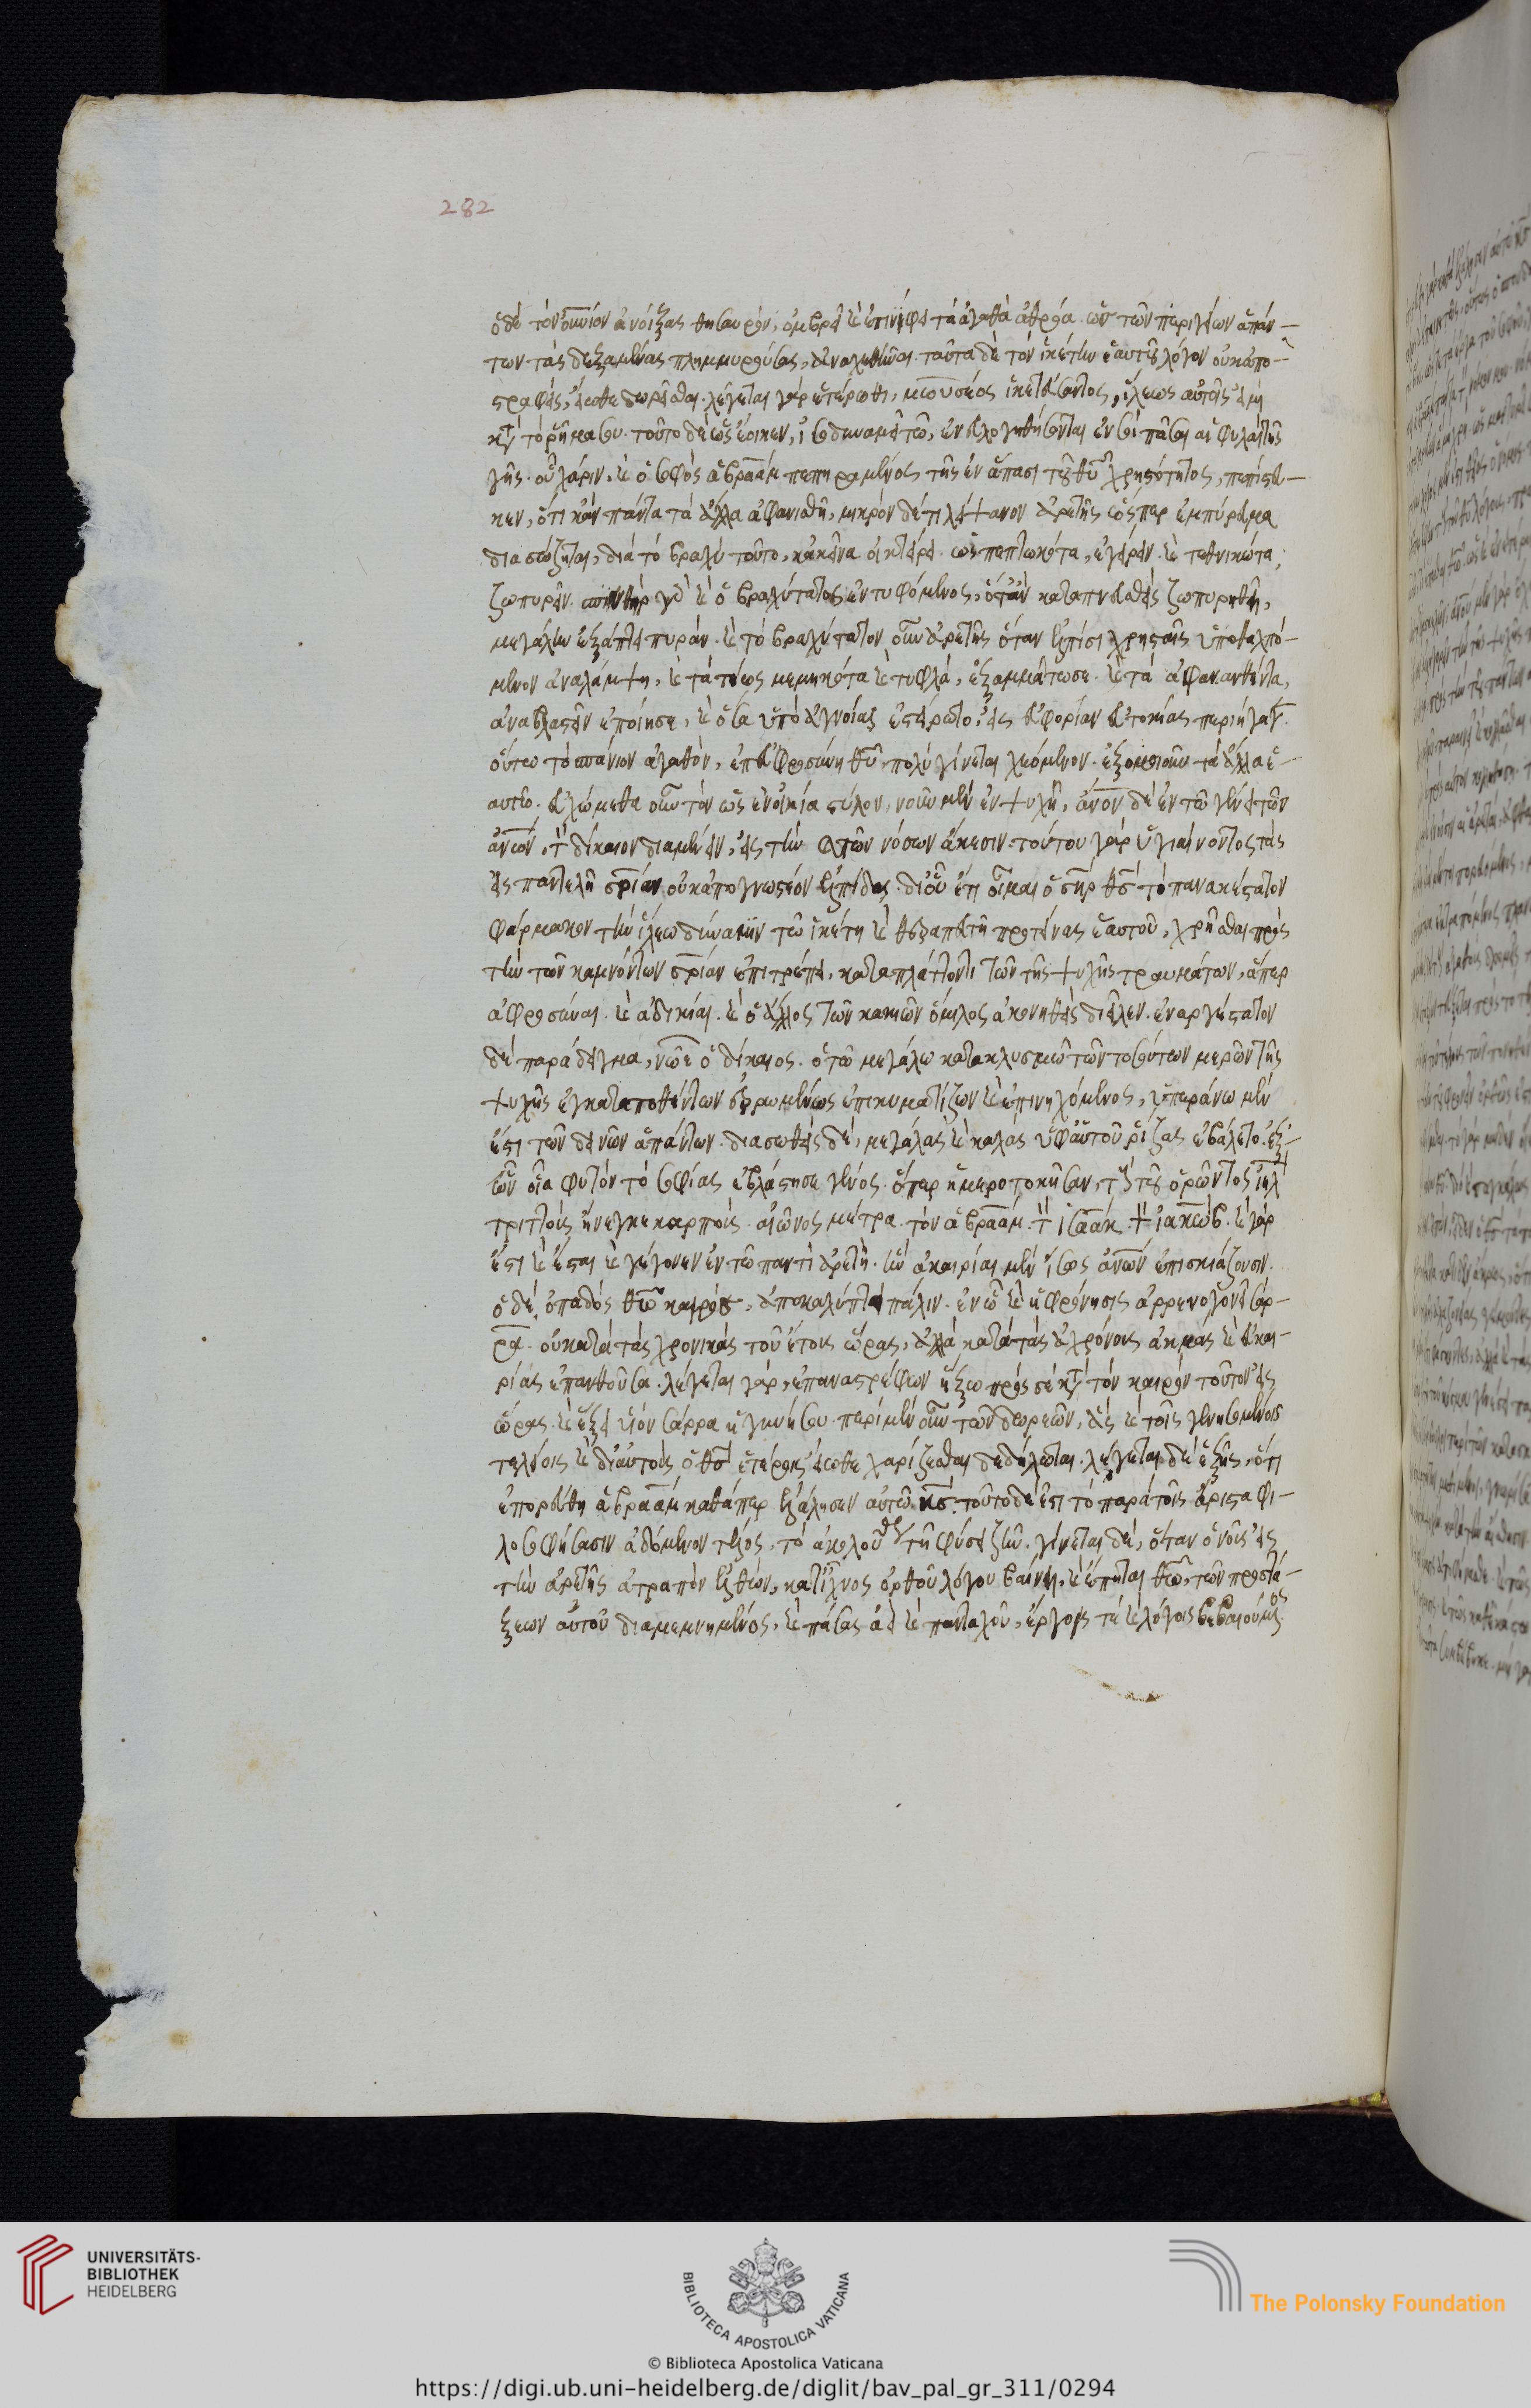 ὁ δὲ τὸν οὐνιον ἀνοίξας θησαυρὸν, ὀμβρεῖ καὶ ἐπινίφει τὰ ἀγαθὰ ἀθρόα. ὡς τῶν περιγείων ἁπάν-
των τὰς δεξαμενὰς πλημμυρούσας, ἀναχυθῆναι. ταῦτα δὲ τὸν ἱκέτην ἑαυτοῦ λόγον οὐκ ἀπο-
στραφεὶς, εἴωθε δωρεῖσθαι. λέγεται γὰρ ἑτέρωθι, μωυσέως ἱκετεύσαντος, ἵλεως αὐτοῖς εἰμὶ
κατὰ τὸ ῥῆμα σου. τοῦτο δὲ ὡς ἔοικεν, ἰσοδυναμεῖ τῶ, ἐνευλογηθήσονται ἐν σοὶ πᾶσαι αἱ φυλαὶ τῆς
γῆς. οὗ χάριν, καὶ ὁ σοφὸς ἀβραὰμ πεπηραμένος τῆς ἐν ἅπασι τοῦ θυ χρηστότητος, πεπίστευ-
κεν, ὅτι κἂν πάντα τὰ ἄλλα ἀφανισθῆ, μικρὸν δέ τι λείψανον ἀρετῆς ὥσπερ ἐμπύρευμα
διασώζηται, διὰ τὸ βραχὺ τοῦτο, κἀκεῖνα οἰκτείρει. ὡς πεπτωκότα, ἐγείρειν. καὶ τεθνηκότα,
ζωπυρεῖν. σπινθὴρ γὰρ καὶ ὁ βραχύτατος ἐντυφόμενος, ὅταν καταπνευσθεὶς ζωπυρηθῆ,
μεγάλην ἐξάπτει πυράν. καὶ τὸ βραχύτατον οὖν ἀρετῆς ὅταν ἐλπίσι χρησταῖς ὑποθαλπό-
μενον ἀναλάμψη, καὶ τὰ τέως μεμηκότα καὶ τυφλὰ, ἐξωμμάτωσε. καὶ τὰ ἀφαυανθέντα,
ἀναβλαστεῖν ἐποίησε, καὶ ὅσα ὑπὸ ἀγονίας ἐστείρωτο, εἰς εὐφορίαν εὐτοκίας περιήγαγεν.
οὕτω τὸ σπάνιον ἀγαθὸν, ἐπ εὐφροσύνη θυ, πολὺ γίνεται χεόμενον. ἐξομοιοῦν τὰ ἄλλα ἑ-
αυτῶ. εὐχώμεθα οὖν τὸν ὡς ἐν οἰκία στύλον, νοῦν μὲν ἐν ψυχῆ, ἄνον δὲ ἐν τῶ γένει τῶν
ἀνων, τὸν δίκαιον διαμένειν, εἰς τὴν τῶν νόσων ἄκεσιν. τούτου γὰρ ὑγιαίνοντος τὰς
εἰς παντελῆ σριαν οὐκ ἀπογνωστέον ἐλπίδας. διότι οἶμαι ὁ σηρ θς τὸ πανακέστατον
φάρμακον τὴν ἵλεω δύναμιν τῶ ἱκέτη καὶ θεραπευτῆ προτείνας ἑαυτοῦ, χρῆσθαι πρὸς
τὴν τῶν καμνόντων σριαν ἐπιτρέπει, καταπλάττοντι τῶν τῆς ψυχῆς τραυμάτων, ἅπερ
ἀφροσύναι. καὶ ἀδικίαι. καὶ ὁ ἄλλος τῶν κακιῶν ὅμιλος ἀκονηθεὶς διεῖλεν. ἐναργέστατον
δὲ παράδειγμα, νῶε ὁ δίκαιος. ὃς τῶ μεγάλω κατακλυσμῶ τῶν τοσούτων μερῶν τῆς
ψυχῆς ἐγκαταποθέντων ἐρρωμένως ἐπικυματίζων καὶ ἐπινηχόμενος, ὑπεράνω μὲν
ἔστη τῶν δεινῶν ἁπάντων. διασωθεὶς δὲ, μεγάλας καὶ καλὰς ὑφ αὑτοῦ ῥίζας ἐβάλετο. ἐξ-
ὧν οἷα φυτὸν τὸ σοφίας ἐβλάστησε γένος. ὅπερ ἡμεροτοκῆσαν, τοὺς τοῦ ὁρῶντος ιηλ
τριττοὺς ἤνεγκε καρποὺς. αἰῶνος μέτρα. τὸν ἀβραάμ. τὸν ἰσαάκ. τὸν ἰακώβ. καὶ γὰρ
ἔστι καὶ ἔσται καὶ γέγονεν ἐν τῶ παντὶ ἀρετή. ἣν ἀκαιρίαι μὲν ἴσως ἀνων ἐπισκιάζουσιν.
ὁ δὲ, ὀπαδὸς θῶ καιρὸς, ἀποκαλύπτει πάλιν. ἐν ὧ καὶ ἡ φρόνησις ἀρρενογονεῖ σάρ-
ρα. οὐ κατὰ τὰς χρονικὰς τοῦ ἔτους ὥρας, ἀλλὰ κατὰ τὰς ἀχρόνους ἀκμὰς καὶ εὐκαι-
ρίας ἐπανθοῦσα. λέγεται γὰρ, ἐπαναστρέφων ἥξω πρὸς σὲ κατὰ τὸν καιρὸν τοῦτον εἰς
ὥρας. καὶ ἕξει υἱὸν σάρρα ἡ γυνή σου. περὶ μὲν οὖν τῶν δωρεῶν, ἃς καὶ τοῖς γενησομένοις
τελείοις καὶ δι αὐτοὺς ὁ θς ἑτέροις εἴωθε χαρίζεσθαι δεδήλωται. λέγεται δὲ ἑξῆς, ὅτι
ἐπορεύθη ἀβραὰμ καθάπερ ἐλάλησεν αὐτῶ κς. τοῦτο δέ ἐστι τὸ παρὰ τοῖς ἄριστα φι-
λοσοφήσασιν ἀδόμενον τέλος, τὸ ἀκολούθως τῆ φύσει ζῆν. γίνεται δὲ, ὅταν ὁ νοῦς εἰς
τὴν ἀρετῆς ἀτραπὸν ἐλθὼν, κατ ἴχνος ὀρθοῦ λόγου βαίνη, καὶ ἕπηται θῶ, τῶν προστά-
ξεων αὐτοῦ διαμεμνημένος, καὶ πάσας ἀεὶ καὶ πανταχοῦ, ἔργοις τὲ καὶ λόγοις βεβαιούμενος
282
UNIVERSITÄTS-
BIBLIOTHEK
HEIDELBERG
BIBLIOTECA APOSTOLICA VATICANA
The Polonsky Foundation
© Biblioteca Apostolica Vaticana
https://digi.ub.uni-heidelberg.de/diglit/bav_pal_gr_311/0294